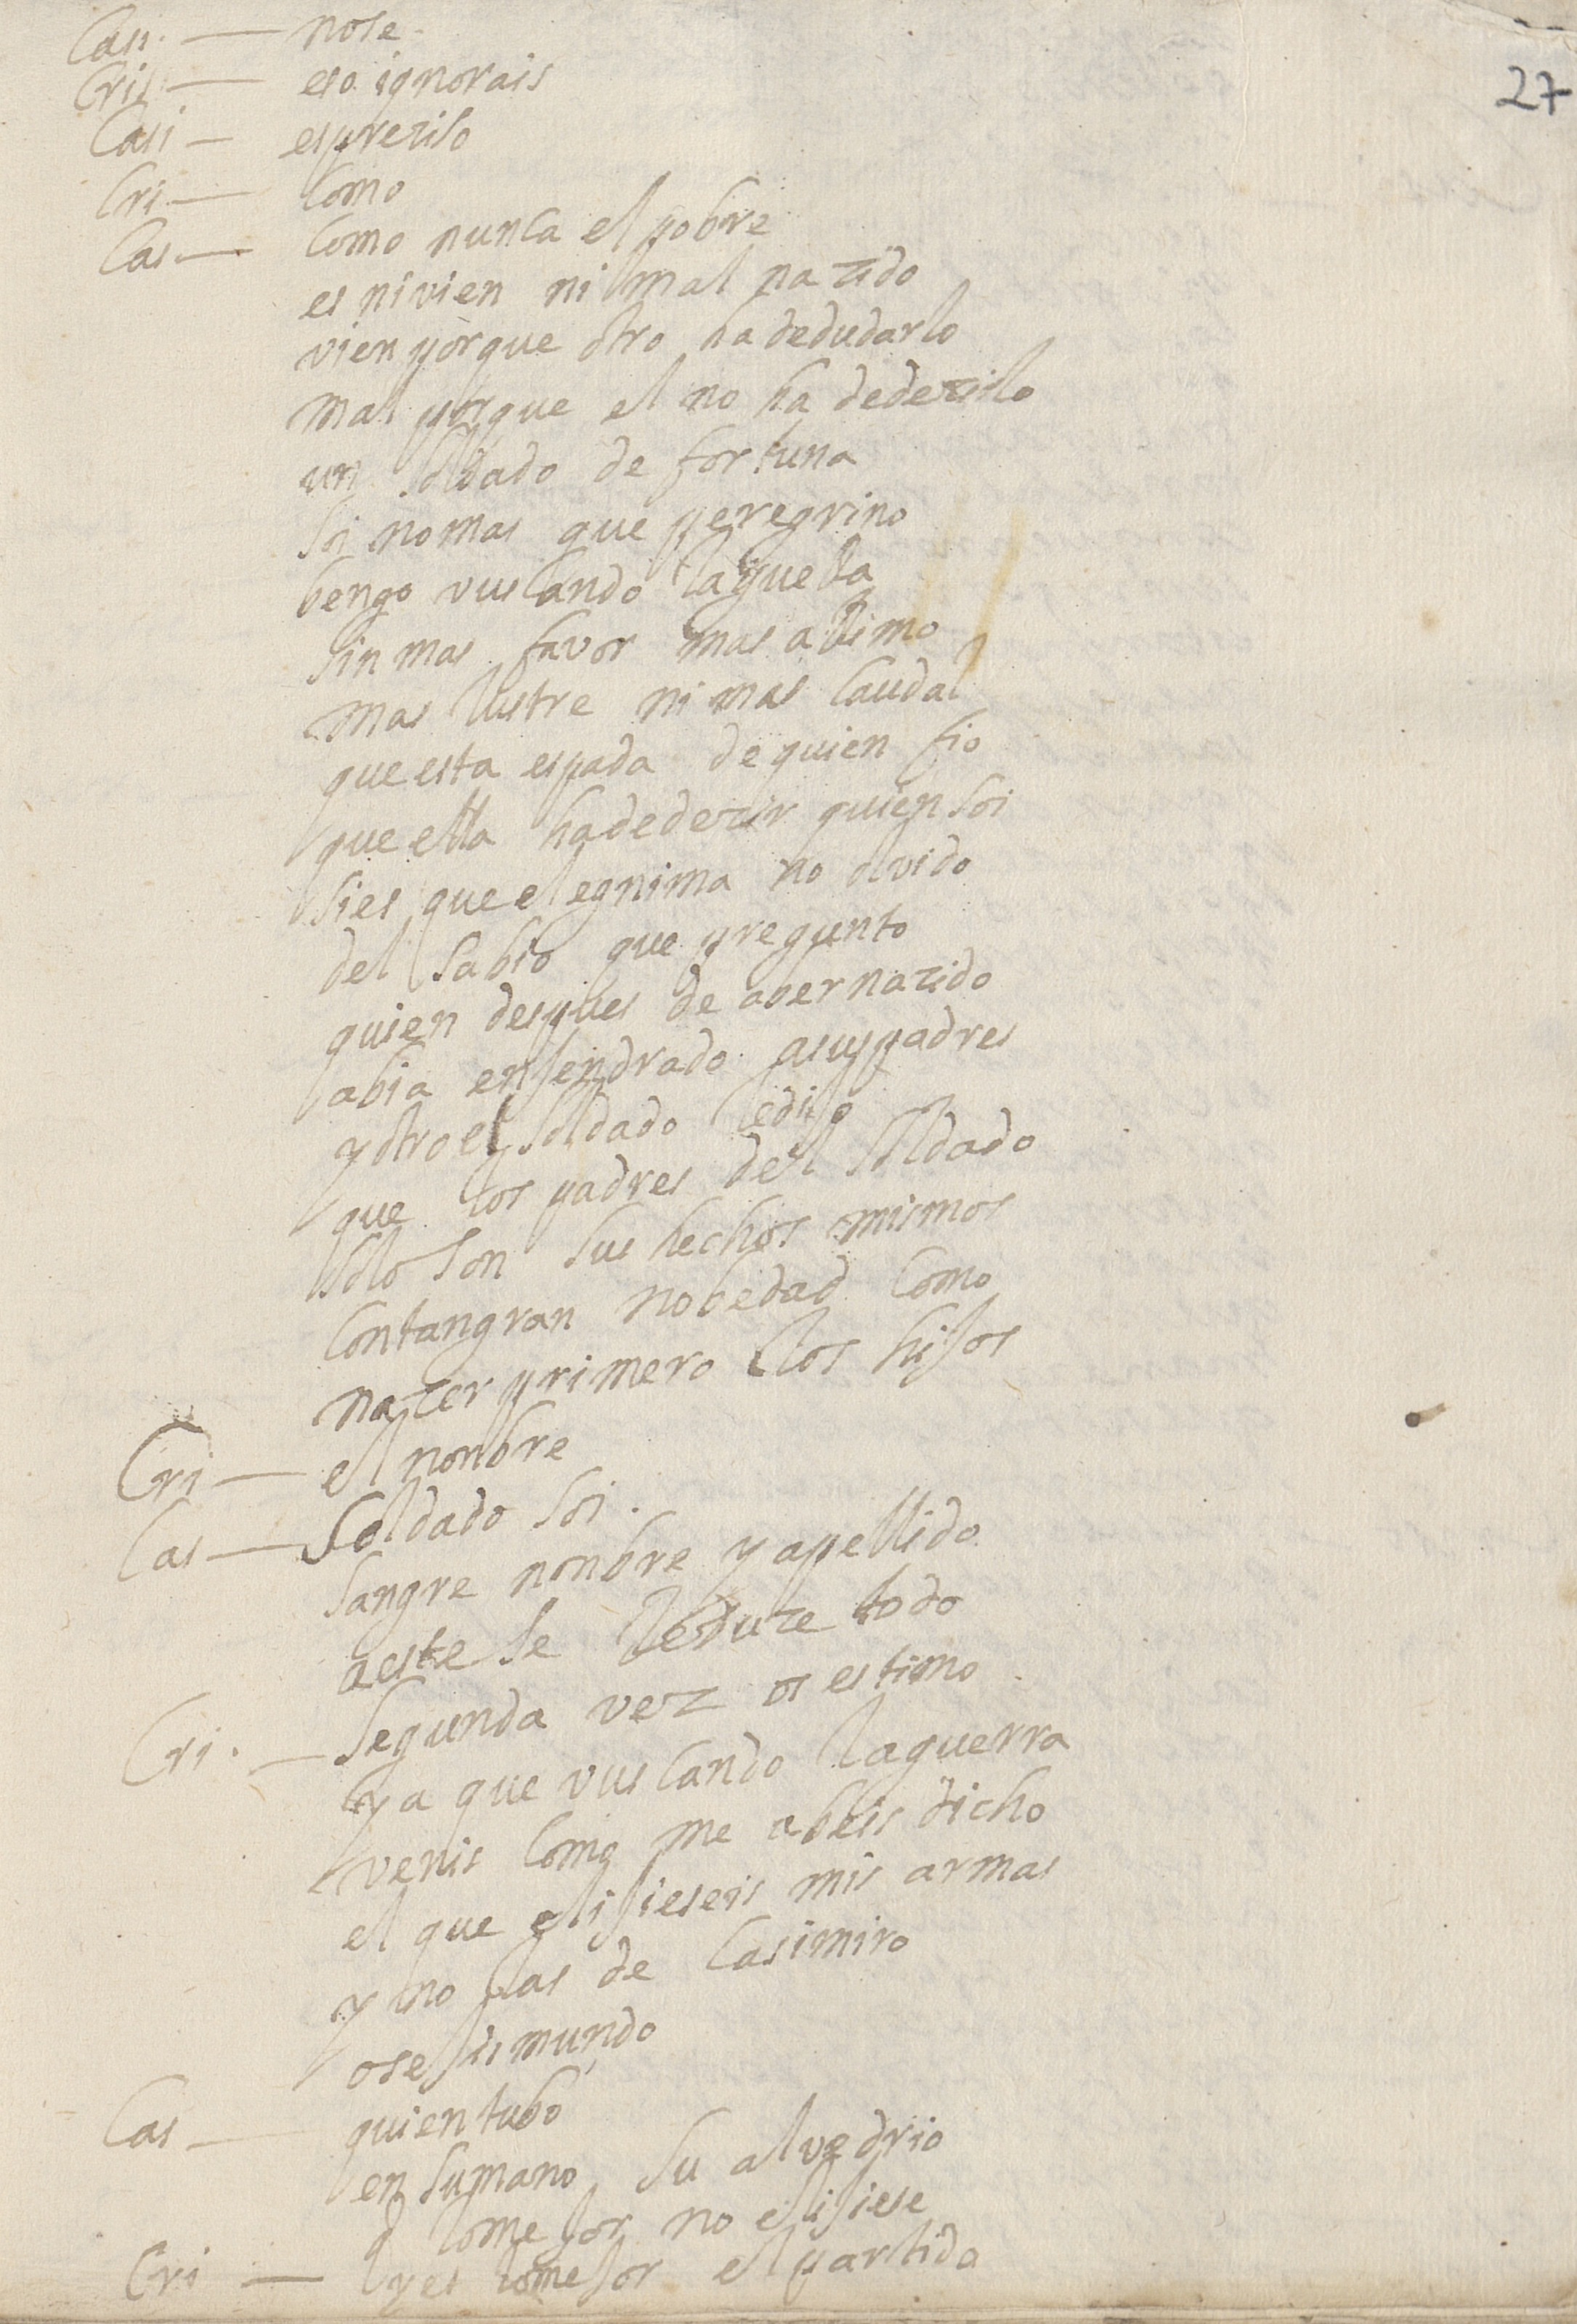 27
Cas. — nose
Cris — eso ignorais
Casi — espreziso
Cri — Como
Cas — Como nunca el pobre
es nivien ni mal nazido
vien porque otro hadedudarlo
mal porque el no ha dedezirlo
un soldado de fortuna
soi nomas que peregrino
bengo vuscando laguerra
sin mas favor mas arrimo
mas lustre ni mas Caudal
que esta espada de quien fio
que ella hadedezir quien soi
sies que el egnima no olvido
del sabio que pregunto
quien despues de aver nazido
abia enjendrado asus padres
y otro el soldado le dijo
que los padres del soldado
solo son sus hechos mismos
Contangran nobedad Como
nazer primero los hijos
Cri — el nonbre
Cas — Soldado soi.
sangre nonbre y apellido
a este se Reduze todo
Cri. — segunda vez os estimo
ya que vuscando laguerra
venis Como me abeis dicho
el que elijieseis mis armas
y no las de Casimiro
o sejismundo
Cas — quien tubo
en sumano su alvedrio
lomejor no elijiese
Cri — yes lomejor el partido